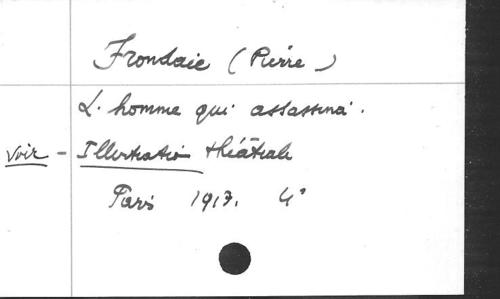 Frondaie (Pierre)
L'homme qui assassina.
voir - Illustration théâtrale
Paris 1913. 4°